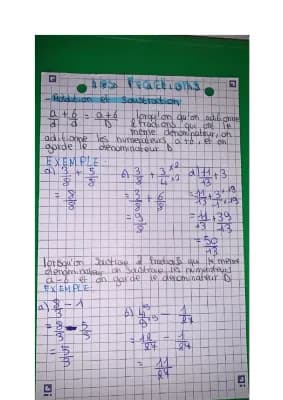 Les Fractions
- Addition et Soustraction
a/d + b/d = a+b/D lorsqu'on additionne
2 fractions qui ont le
même dénominateur, on
additionne les numérateurs a+b, et on
garde le dénominateur D
EXEMPLE:
a) 3/8 + 5/8 b) 3/8 + 3/4 ×2/×2 d) 11/13 + 3
= 8/8 = 3/8 + 6/8 = 11/13 + 3/1 ×13/×13
= 9/8 = 11/13 + 39/13
= 50/13
lorsqu'on soustrait 2 fractions qui le même
dénominateur on soustrait les numérateurs
a-b et on garde le dénominateur D.
EXEMPLE:
a) 8/3 - 1 b) 4/9 - 1/27
= 12/27 - 1/27
= 5/3 = 11/27